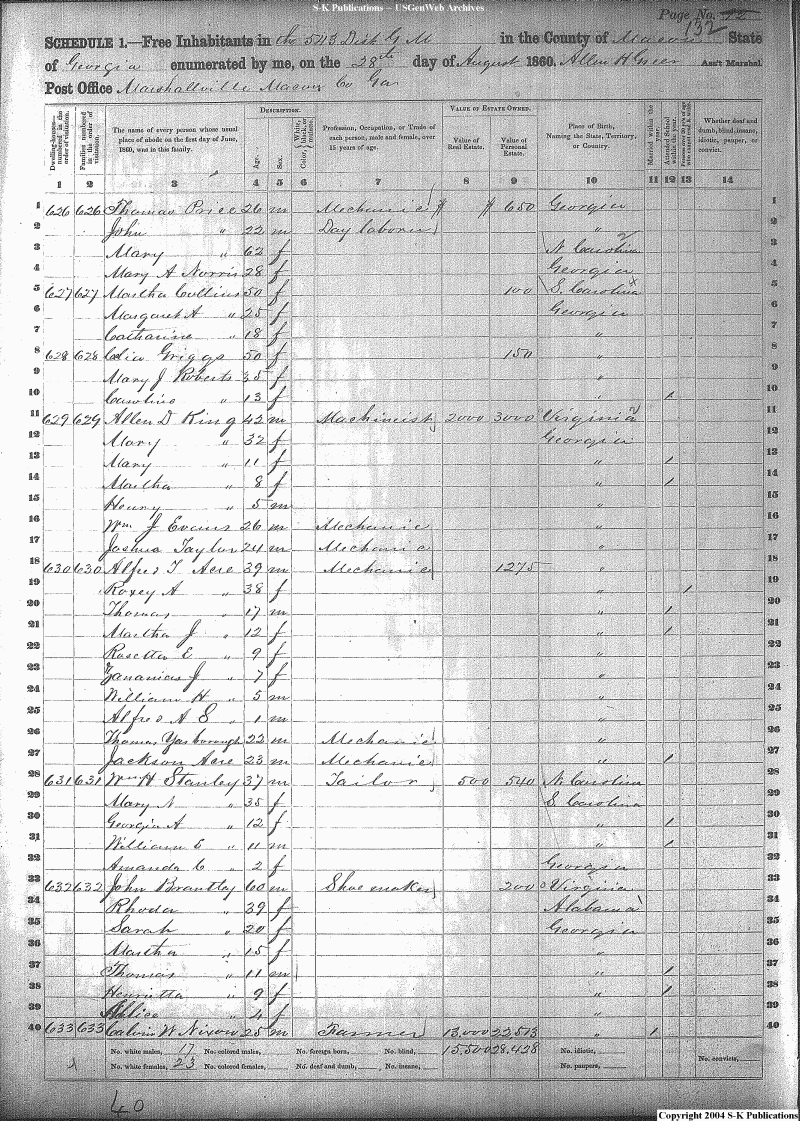 S-K Publications – USGenWeb Archives
Page No. 12
132
SCHEDULE 1.—Free Inhabitants in the 543 Dist G M in the County of Macon State
of Georgia enumerated by me, on the 28th day of August 1860. Allen H Greer Ass't Marshal.
Post Office Marshallville Macon Co Ga
Dwelling-houses—numbered in the order of visitation.
Families numbered in the order of visitation.
The name of every person whose usual place of abode on the first day of June, 1860, was in this family.
DESCRIPTION.
Age.
Sex.
Color, White, black, or mulatto.
Profession, Occupation, or Trade of each person, male and female, over 15 years of age.
VALUE OF ESTATE OWNED.
Value of Real Estate.
Value of Personal Estate.
Place of Birth, Naming the State, Territory, or Country.
Married within the year.
Attended School within the year.
Persons over 20 y'rs of age who cannot read & write.
Whether deaf and dumb, blind, insane, idiotic, pauper, or convict.
1 2 3 4 5 6 7 8 9 10 11 12 13 14
1 626 626 Thomas Price 26 m Mechanic $ $ 650 Georgia 1
2 John " 22 m Day laborer " 2
3 Mary " 62 f N. Carolina 3
4 Mary A Norris 28 f Georgia 4
5 627 627 Martha Collins 50 f 100 S. Carolina 5
6 Margaret A " 25 f Georgia 6
7 Catharine " 18 f " 7
8 628 628 Celia Griggs 50 f 150 " 8
9 Mary J Roberts 35 f " 9
10 Caroline " 13 f " / 10
11 629 629 Allen D King 42 m Machineist 2000 3000 Virginia 11
12 Mary " 32 f Georgia 12
13 Mary " 11 f " / 13
14 Martha " 8 f " / 14
15 Henry " 5 m " 15
16 Wm J Evans 26 m Mechanic " 16
17 Joshua Taylor 24 m Mechanic " 17
18 630 630 Alfred T Acre 39 m Mechanic 1275 " 18
19 Roxey A " 38 f " / 19
20 Thomas " 17 m " / 20
21 Martha J " 12 f " / 21
22 Rosetta E " 9 f " 22
23 Zananias J " 7 f " 23
24 William H " 5 m " 24
25 Alfred A S " 1 m " 25
26 Thomas Yasborough 22 m Mechanic " 26
27 Jackson Acre 23 m Mechanic " / 27
28 631 631 Wm H Stanley 37 m Tailor 500 540 N. Carolina 28
29 Mary N " 35 f S. Carolina 29
30 Georgia A " 12 f " / 30
31 William E " 11 m " / 31
32 Amanda C " 2 f Georgia 32
33 632 632 John Brantley 60 m Shoe maker 200 Virginia 33
34 Rhoda " 39 f Alabama 34
35 Sarah " 20 f Georgia 35
36 Martha " 15 f " 36
37 Thomas " 11 m " / 37
38 Henrietta " 9 f " / 38
39 Allice " 4 f " 39
40 633 633 Calvin W Nixon 25 m Farmer 13.000 22513 " 1 40
No. white males, 17 No. colored males, No. foreign born, No. blind, 15.500 28.428 No. idiotic, No. convicts,
No. white females, 23 No. colored females, No. deaf and dumb, No. insane, No. paupers,
40
Copyright 2004 S-K Publications